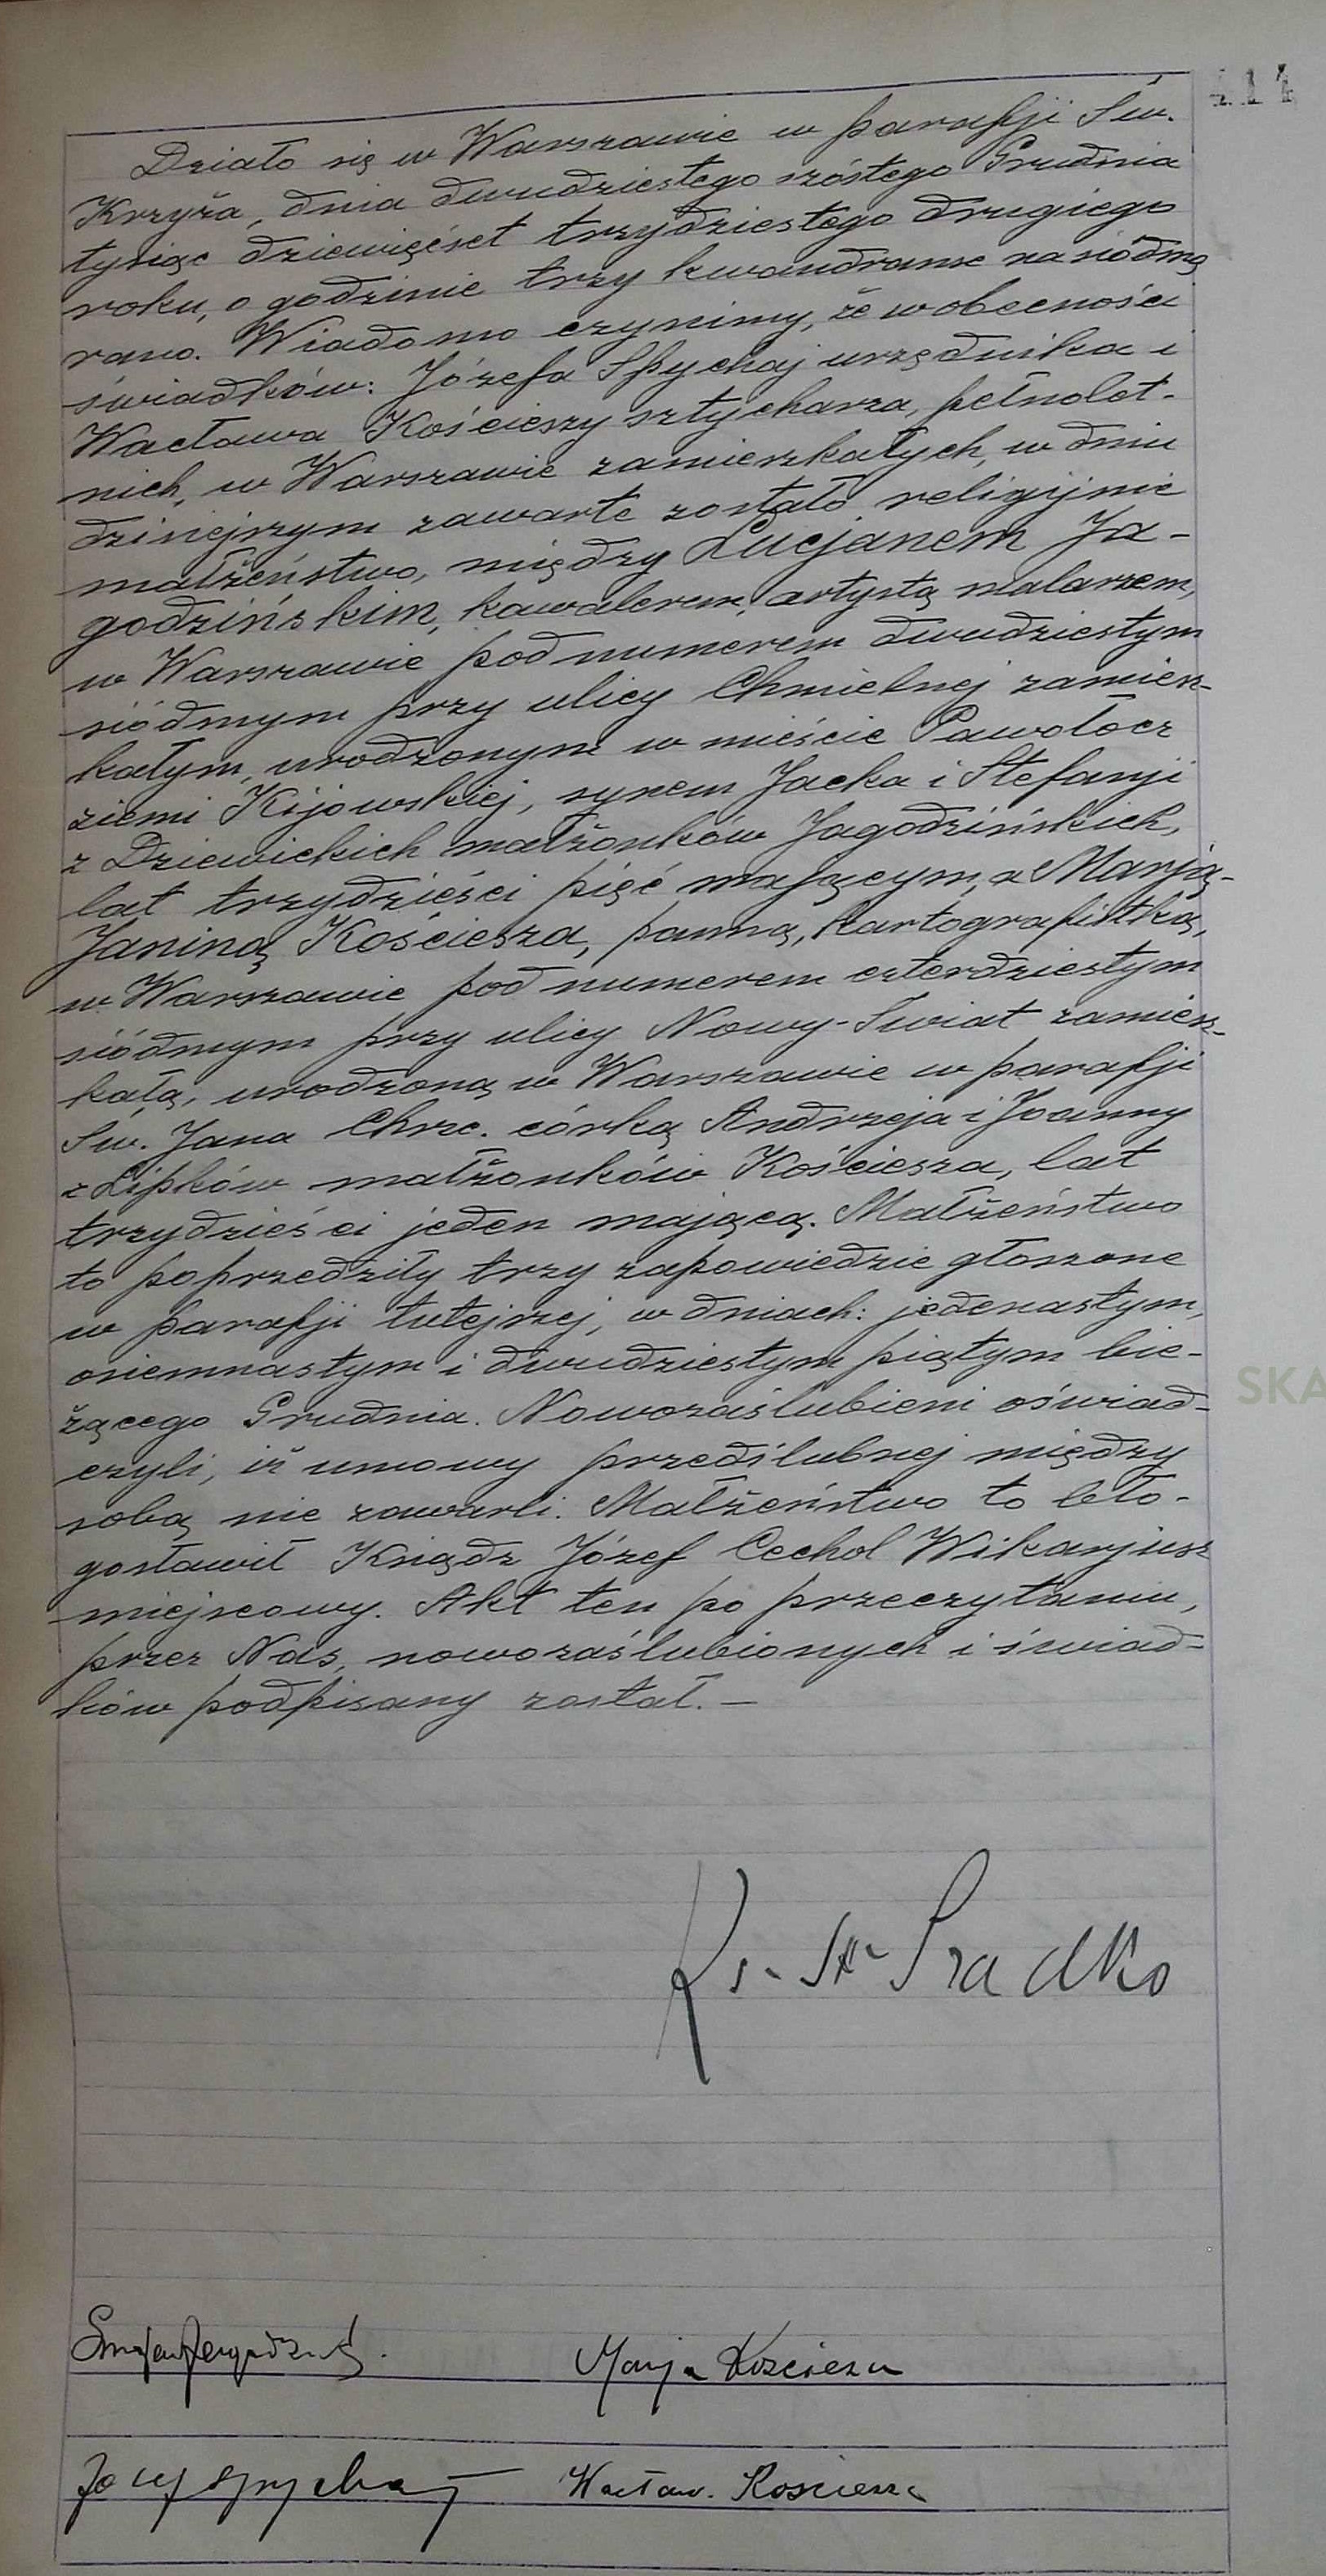 414
Działo się w Warszawie w parafji Św.
Krzyża, dnia dwudziestego szóstego Grudnia
tysiąc dziewięćset trzydziestego drugiego
roku, o godzinie trzy kwandranse na siódmą
rano. Wiadomo czynimy, że w obecności
świadków: Józefa Spychaj urzędnika i
Wacława Kościeszy sztycharza, pełnolet-
nich, w Warszawie zamieszkałych, w dniu
dzisiejszym zawarte zostało religijnie
małżeństwo, między Lucjanem Ja-
godzińskim, kawalerem, artystą malarzem,
w Warszawie pod numerem dwudziestym
siódmym przy ulicy Chmielnej zamiesz-
kałym, urodzonym w mieście Pawołocz
ziemi Kijowskiej, synem Jacka i Stefanji
z Dziewickich małżonków Jagodzińskich,
lat trzydzieści pięć mającym, a Marją-
Janiną Kościesza, panną, kartografistką,
w Warszawie pod numerem czterdziestym
siódmym przy ulicy Nowy-Świat zamiesz-
kałą, urodzoną w Warszawie w parafji
Św. Jana Chrzc. córką Andrzeja i Joanny
z Lipków małżonków Kościesza, lat
trzydzieści jeden mającą. Małżeństwo
to poprzedziły trzy zapowiedzie głoszone
w parafji tutejszej, w dniach: jedenastym,
osiemnastym i dwudziestym piątym bie-
żącego Grudnia. Nowozaślubieni oświad-
czyli, iż umowy przedślubnej między
sobą nie zawarli. Małżeństwo to bło-
gosławił Ksiądz Józef Cechol Wikarjusz
miejscowy. Akt ten po przeczytaniu,
przez Nas, nowozaślubionych i świad-
ków podpisany został. —
SKA
Ks. St
Marja Kościesza
Józef Spychaj Wacław. Kościesza